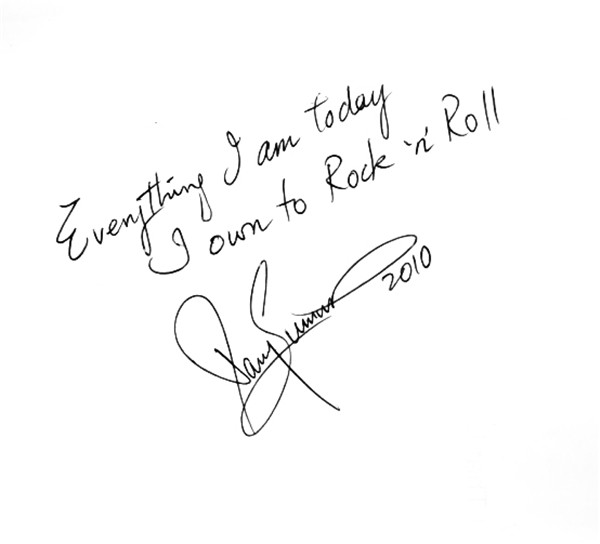 Everything I am today
I own to Rock 'n' Roll
2010